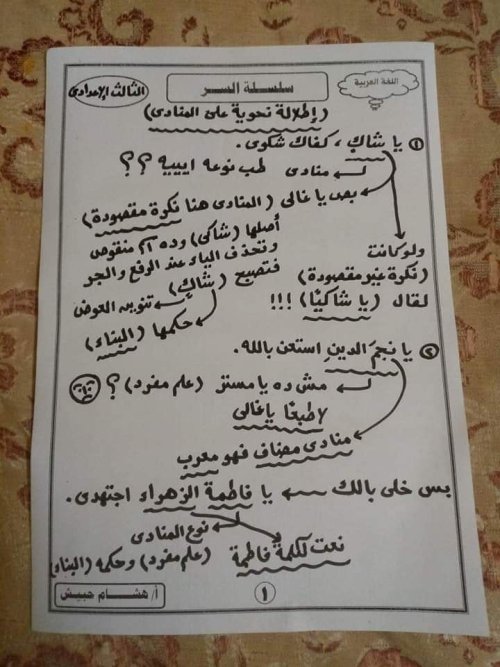 اللغة العربية
سلسلة السر
الثالث الإعدادى
(إطلالة نحوية على المنادى)
١ يا شاكٍ، كفاك شكوى.
منادى طب نوعه اييييه ؟؟
بص يا غالى (المنادى هنا نكرة مقصودة)
أصلها (شاكى) وده اسم منقوص
وتحذف الياء عند الرفع والجر
فتصبح (شاكٍ)
تنوين العوض
حكمها (البناء)
ولو كانت
(نكرة غير مقصودة)
لقال (يا شاكيًا) !!!
٢ يا نجمَ الدينِ استعن بالله.
مش ده يا مستر (علم مفرد) ؟
لا طبعًا يا غالى
منادى مضاف فهو معرب
بس خلى بالك يا فاطمة الزهراء اجتهدى.
نوع المنادى
(علم مفرد) وحكمه (البناء)
نعت لكلمة فاطمة
١
أ/ هشام حبيش